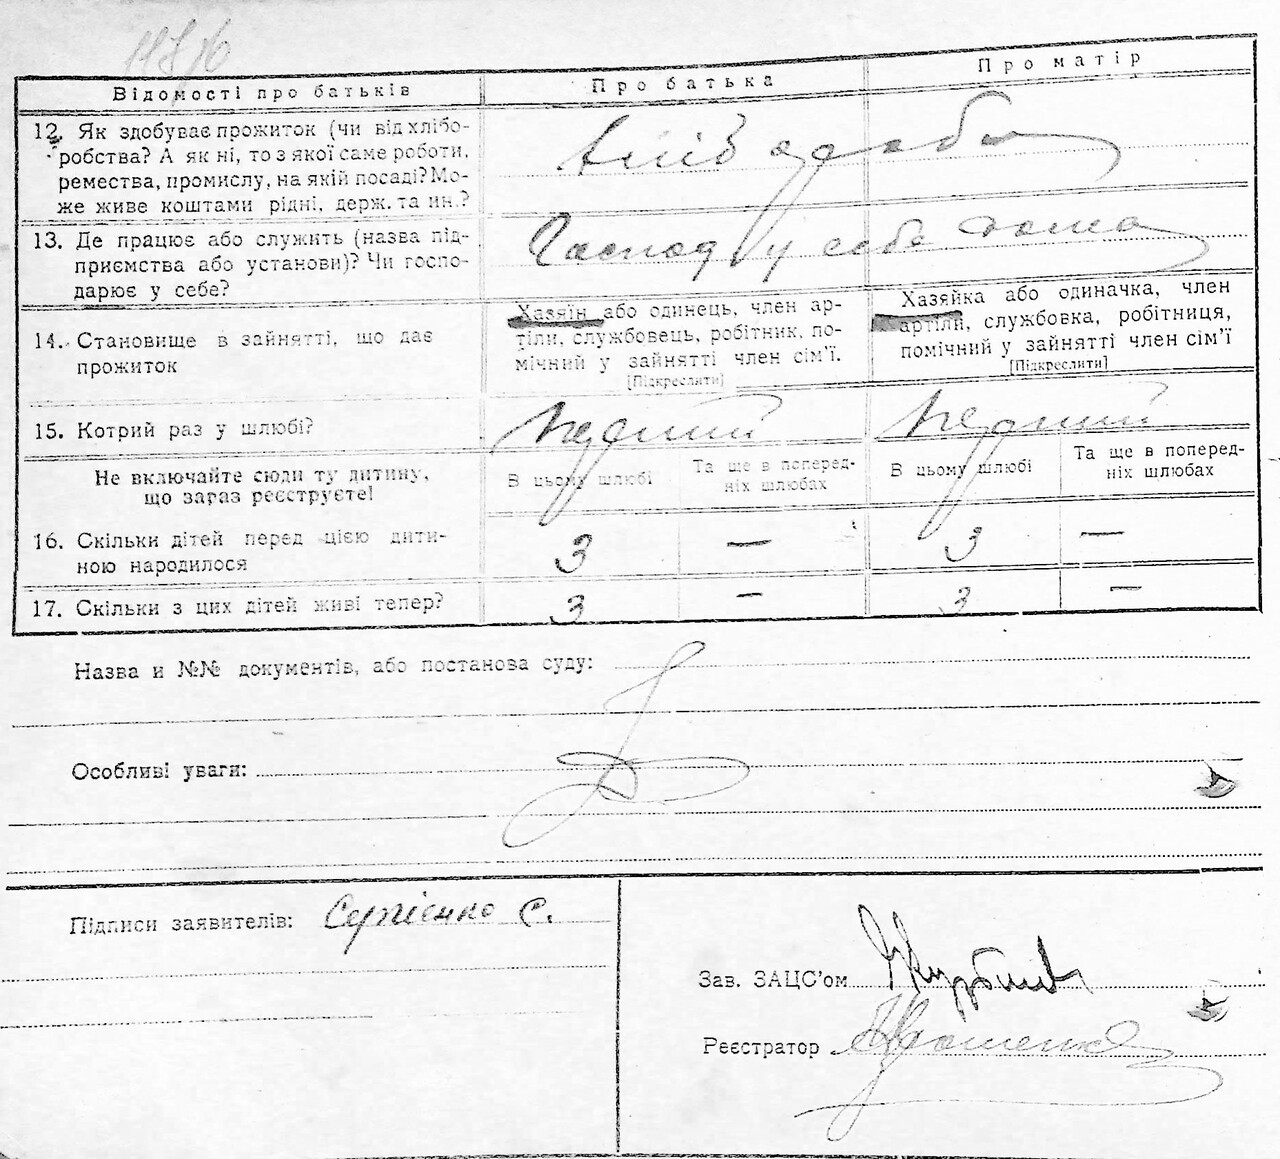 Відомості про батьків
Про батька
Про матір
12. Як здобуває прожиток (чи від хлібо-
робства? А як ні, то з якої саме роботи,
ремества, промислу, на якій посаді? Мо-
же живе коштами рідні, держ. та ин.?
13. Де працює або служить (назва під-
приємства або установи)? Чи госпо-
дарює у себе?
Господ у себе дома
14. Становище в зайнятті, що дає
прожиток
Хазяїн або одинець, член ар-
тіли, службовець, робітник, по-
мічний у зайнятті член сім'ї.
[Підкреслити]
Хазяйка або одиначка, член
артіли, службовка, робітниця,
помічний у зайнятті член сім'ї
[Підкреслити]
15. Котрий раз у шлюбі?
Не включайте сюди ту дитину,
що зараз реєструєте!
В цьому шлюбі
Та ще в поперед-
ніх шлюбах
В цьому шлюбі
Та ще в поперед-
ніх шлюбах
16. Скільки дітей перед цією дити-
ною народилося
3 — 3 —
17. Скільки з цих дітей живі тепер?
3 — 3 —
Назва и №№ документів, або постанова суду:
Особливі уваги:
Підписи заявителів: Сергієнко С.
Зав. ЗАЦС'ом
Реєстратор